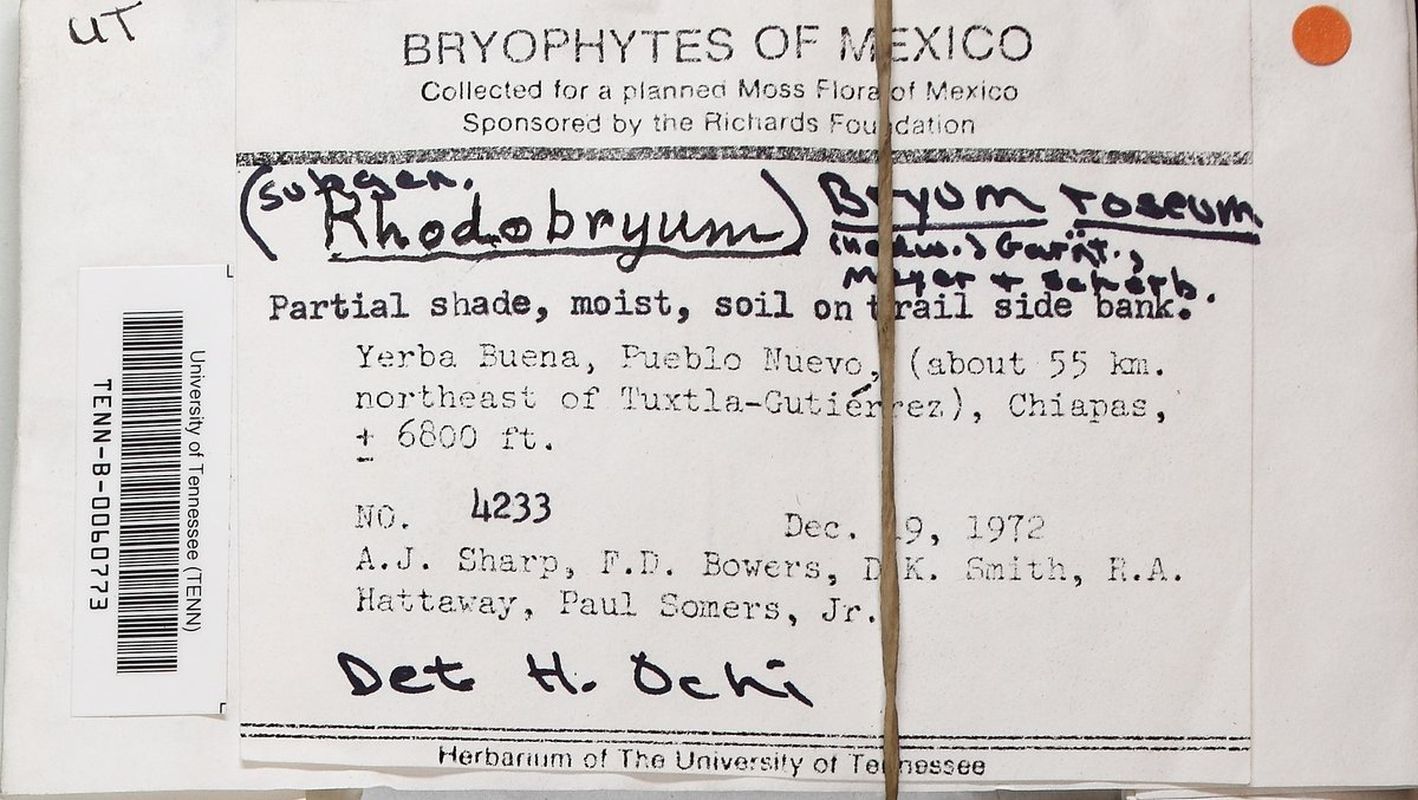 UT
BRYOPHYTES OF MEXICO
Collected for a planned Moss Flora of Mexico
Sponsored by the Richards Foundation
(subgen. Rhodobryum) Bryum roseum
(Hedw.) Gärtn.,
Meyer + Scherb.
Partial shade, moist, soil on trail side bank.
Yerba Buena, Pueblo Nuevo, (about 55 km.
northeast of Tuxtla-Gutiérrez), Chiapas,
± 6800 ft.
NO. 4233 Dec. 9, 1972
A.J. Sharp, F.D. Bowers, D.K. Smith, R.A.
Hattaway, Paul Somers, Jr.
Det H. Ochi
Herbarium of The University of Tennessee
University of Tennessee (TENN)
TENN-B-0060773